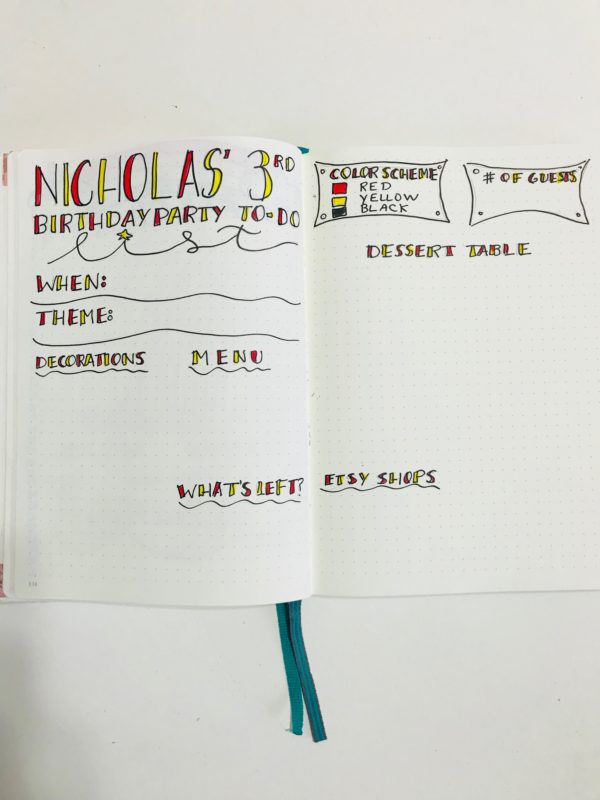 NICHOLAS' 3RD
BIRTHDAY PARTY TO-DO
list
WHEN:
THEME:
DECORATIONS
MENU
WHAT'S LEFT?
COLOR SCHEME
RED
YELLOW
BLACK
# OF GUESTS
DESSERT TABLE
ETSY SHOPS